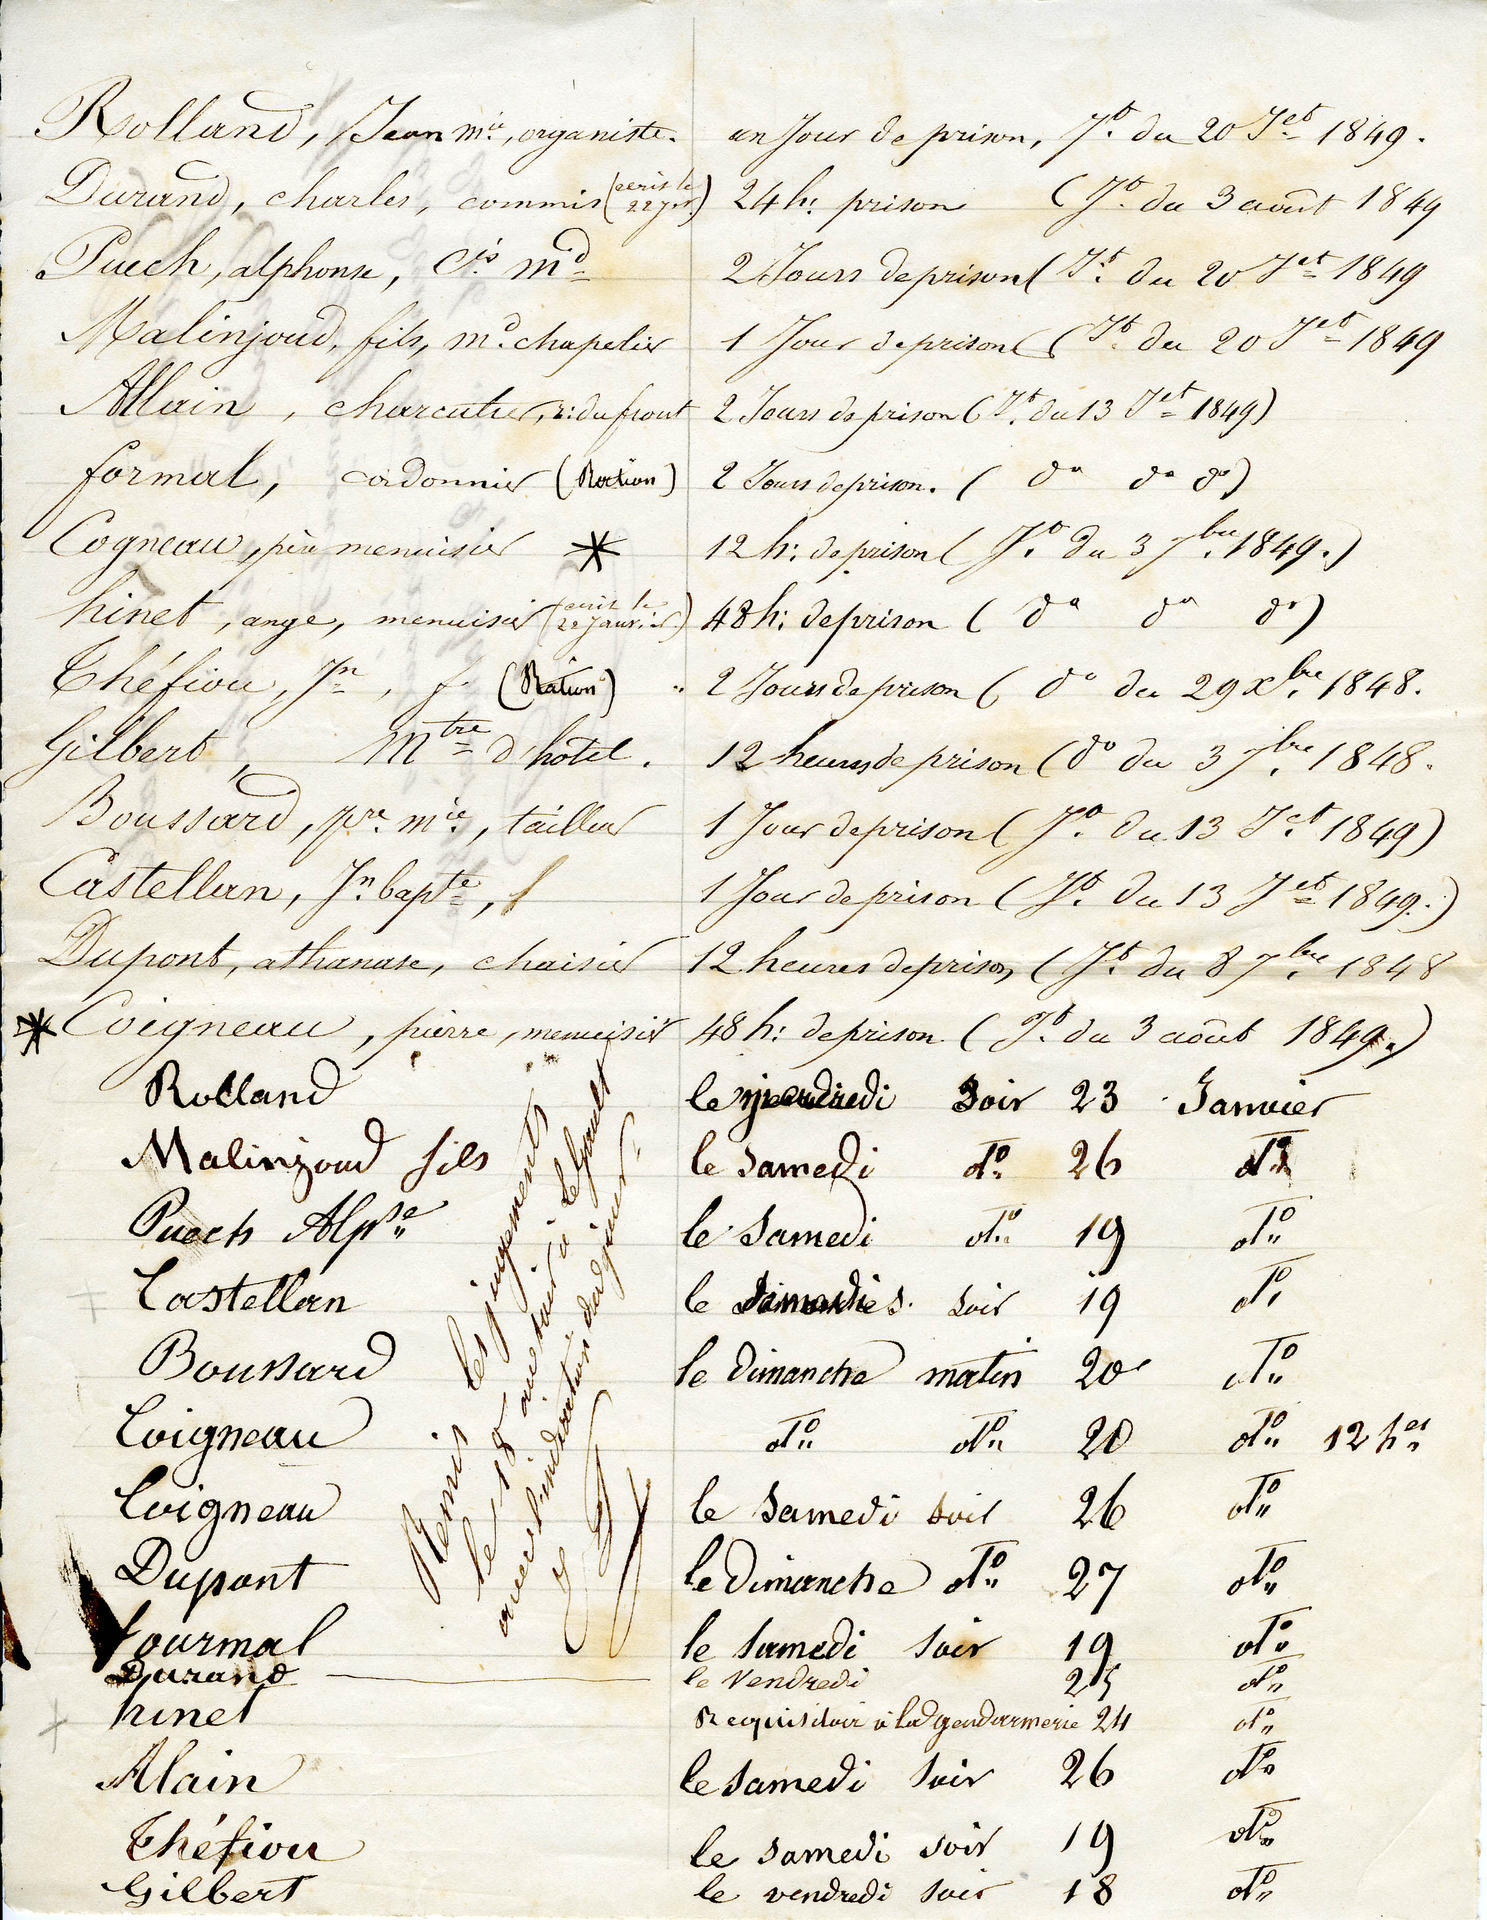 Rolland, Jean mie, organiste. un Jour de prison, Jt. du 20 Jet 1849.
Durand, charles, commis (écris le 22 jer.) 24 h: prison (Jt. du 3 août 1849
Puech, alphonse, Cis md 2 Jours de prison (Jt. du 20 Jet 1849
Malinjoud, fils, md. chapelier 1 Jour de prison (Jt. du 20 Jet 1849
Allain, charcutier, r: du front 2 Jours de prison (Jt. du 13 Jet 1849)
formal, cordonnier (Station) 2 Jours de prison. (do do do)
Cogneau, père menuisier * 12 h: de prison (Jt. du 3 7bre. 1849.)
hinet, ange, menuisier (écris le 22 Janvier.) 48 h: de prison (do do do)
Théfiou, Jn, f. (Station) " 2 Jours de prison (do du 29 Xbre. 1848.
Gilbert, Mtre d'hôtel. 12 heures de prison (do du 3 7bre. 1848.
Boussard, pre. mie., tailleur 1 Jour de prison (Jt. du 13 Jet. 1849)
Castellan, Jn. bapte, f 1 Jour de prison (Jt. du 13 Jet 1849.)
Dupont, athanase, chaisier 12 heures de prison, (Jt. du 8 7bre. 1848
* Coigneau, pierre, menuisier 48 h: de prison (Jt. du 3 août 1849.)
Rolland le soir 23 Janvier
Malinjoud fils le samedi do. 26 do.
Puech Alpse le Samedi do. 19 do.
Castellan le soir 19 do.
Boussard le dimanche matin 20 do.
Coigneau do. do. 20 do. 12 hes
Coigneau le Samedi soir 26 do.
Dupont le Dimanche do. 27 do.
fourmal le samedi soir 19 do.
Durand le Vendredi 25 do.
hinet Requisitoir à la gendarmerie 24 do.
Alain le samedi soir 26 do.
Théfiou le samedi soir 19 do.
Gilbert le vendredi soir 18 do.
Remis les jugements
le 18 au soir à Legault
avec l'indication du jour.